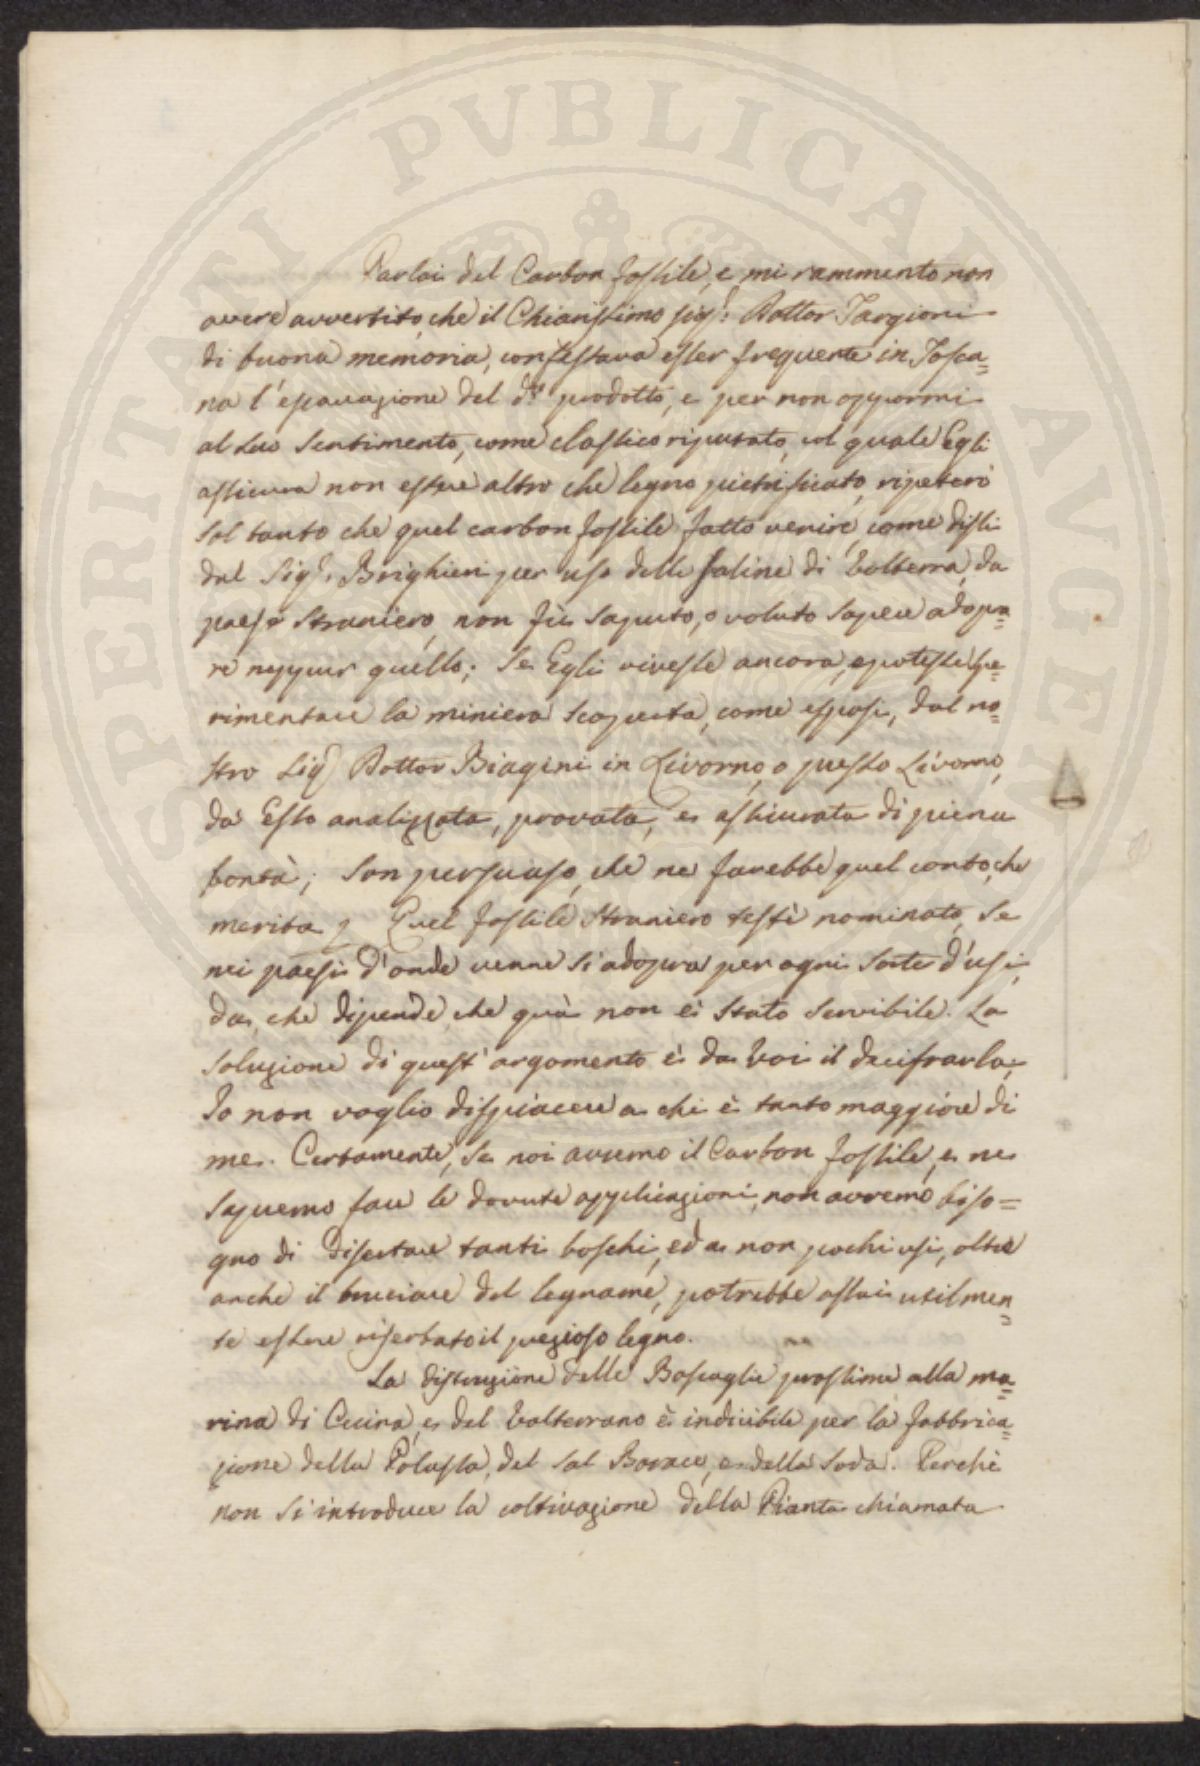 PROSPERITATI PUBLICAE AUGENDAE
Parlai del Carbon fossile, e mi rammento non
avere avvertito, che il Chiarissimo Sig.r Dottor Targioni
di buona memoria, confessava esser frequente in Tosca=
na l'escavazione del d.o prodotto, e per non oppormi
al suo sentimento, come classico riputato, col quale Egli
assicura non essere altro che legno pietrificato, ripeterò
sol tanto che quel carbon fossile fatto venire, come dissi
dal Sig.r Brighieri per uso delle saline di Volterra, da
paese straniero, non fù saputo, o voluto sapere adopra=
re neppur quello; Se Egli vivesse ancora, e potesse spe=
rimentare la miniera scoperta, come esposi, dal no=
stro Sig.r Dottor Biagini in Livorno, o presso Livorno,
da Esso analizzata, provata, e assicurata di piena
bontà; son persuaso, che ne farebbe quel conto, che
merita. Quel fossile straniero testè nominato, se
nei paesi d'onde venne si adopra per ogni sorte d'usi,
da che dipende che quà non è stato servibile. La
soluzione di quest'argomento è da Voi il decifrarla,
Io non voglio dispiacere a chi è tanto maggiore di
me. Certamente, se noi avremo il Carbon fossile, e ne
sapremo fare le dovute applicazioni, non avremo biso=
gno di disertare tanti boschi, ed a non pochi usi, oltre
anche il bruciare del legname, potrebbe assai utilmen=
te essere riserbato il prezioso legno.
La distruzione delle Boscaglie prossime alla ma=
rina di Cecina, e del Volterrano è indicibile per la fabbrica=
zione della Potassa, del Sal Borace, e della Soda. Perchè
non si introduce la coltivazione della Pianta chiamata